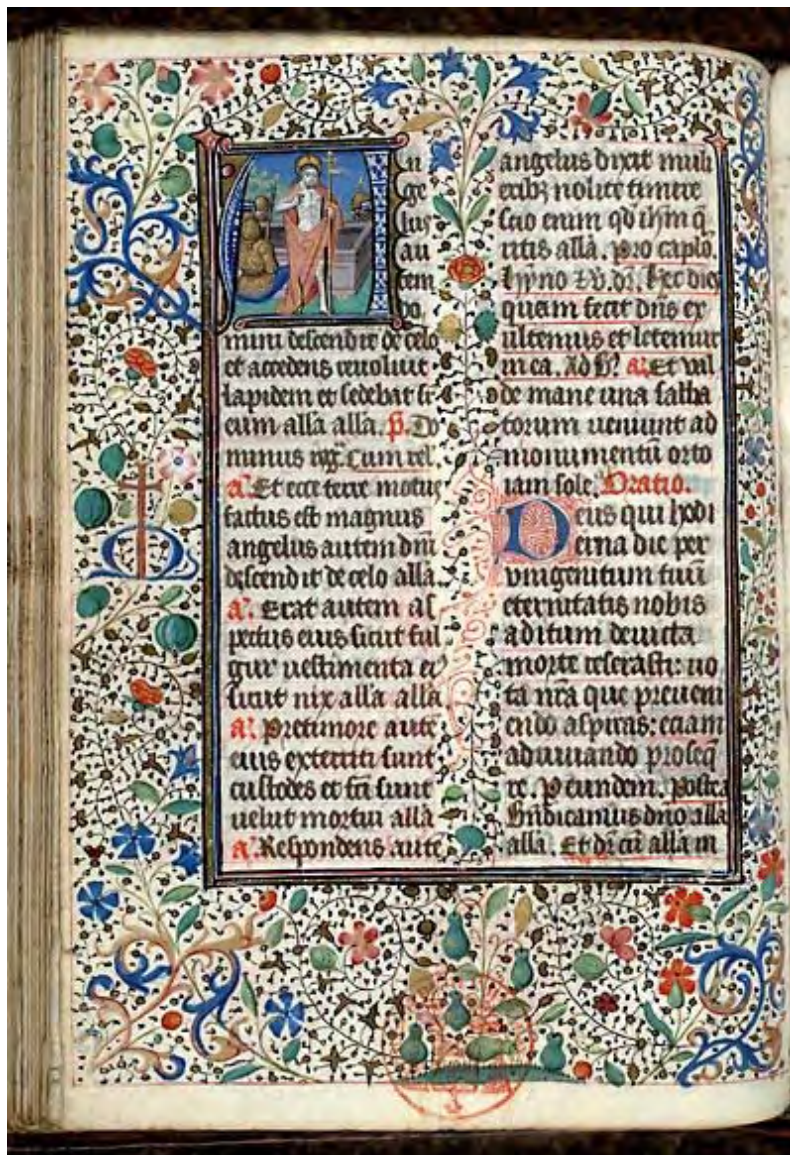 A n
ge
lus
au
tem
do
mini descendit de celo
et accedens revoluit
lapidem et sedebat su
eum alla alla. p. Do
minus reg. Cum rel.
a. Et ecce terre motus
factus est magnus
angelus autem dni
descendit de celo alla.
a. Erat autem as
pectus eius sicut ful
gur vestimenta ei
sicut nix alla alla.
a. Pre timore aute
eius exterriti sunt
custodes et fci sunt
velut mortui alla
a. Respondens aute
angelus dixit muli
eribz nolite timere
scio enim qd ihm q
ritis alla. pro caplo.
hyno dr. Hec dies
quam fecit dns ex
ultemus et letemur
in ea. Ad a. Et val
de mane una sabba
torum veniunt ad
monumentu orto
iam sole. Oratio.
Deus qui hodi
erna die per
vnigenitum tuu
eternitatis nobis
aditum devicta
morte reserasti: uo
ta nra que preueni
endo aspiras: eciam
adiuuando proseq
re. P eundem. Postea
Bndicamus dno alla
alla. Et dr cu alla in